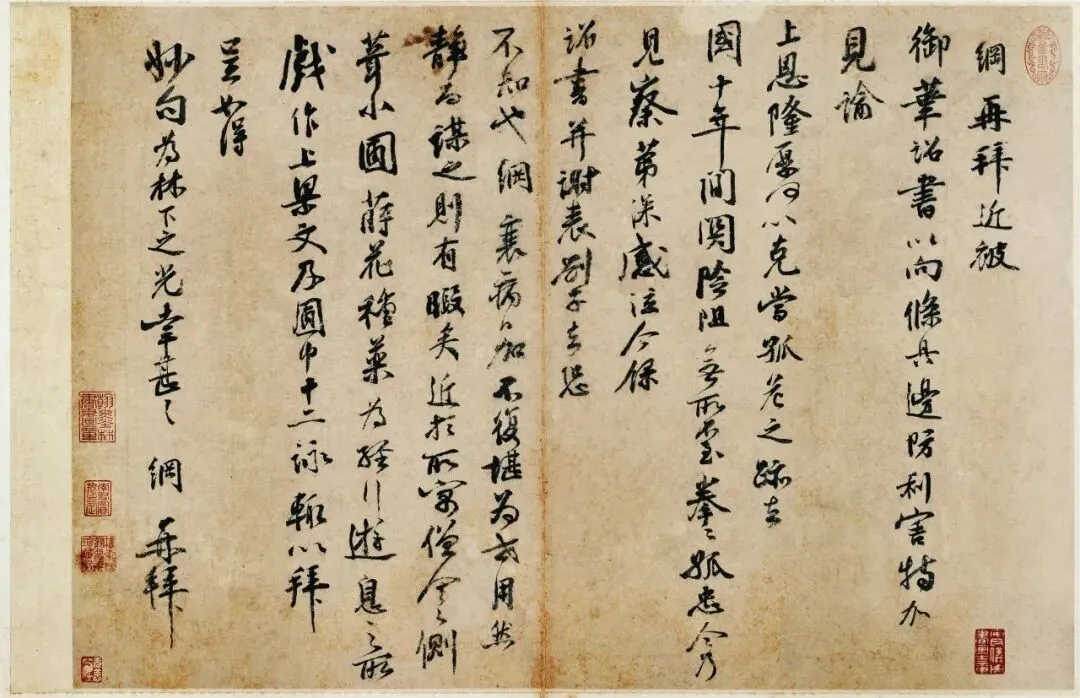 綱再拜近被
御筆詔書以向條具邊防利害特加
見諭
上恩隆厚何以克當孤危之蹤去
國十年間關險阻無所不至拳拳孤忠今乃
見察第深感泣今錄
詔書并謝表劄子去恐
不知也綱衰病日加不復堪為世用然
靜為謀之則有暇矣近於所寓僧舍之側
葺小圃蒔花種藥為經行遊息之所
戲作上梁文及圃中十二詠輒以拜
呈如得
妙句為林下之光幸甚甚綱再拜